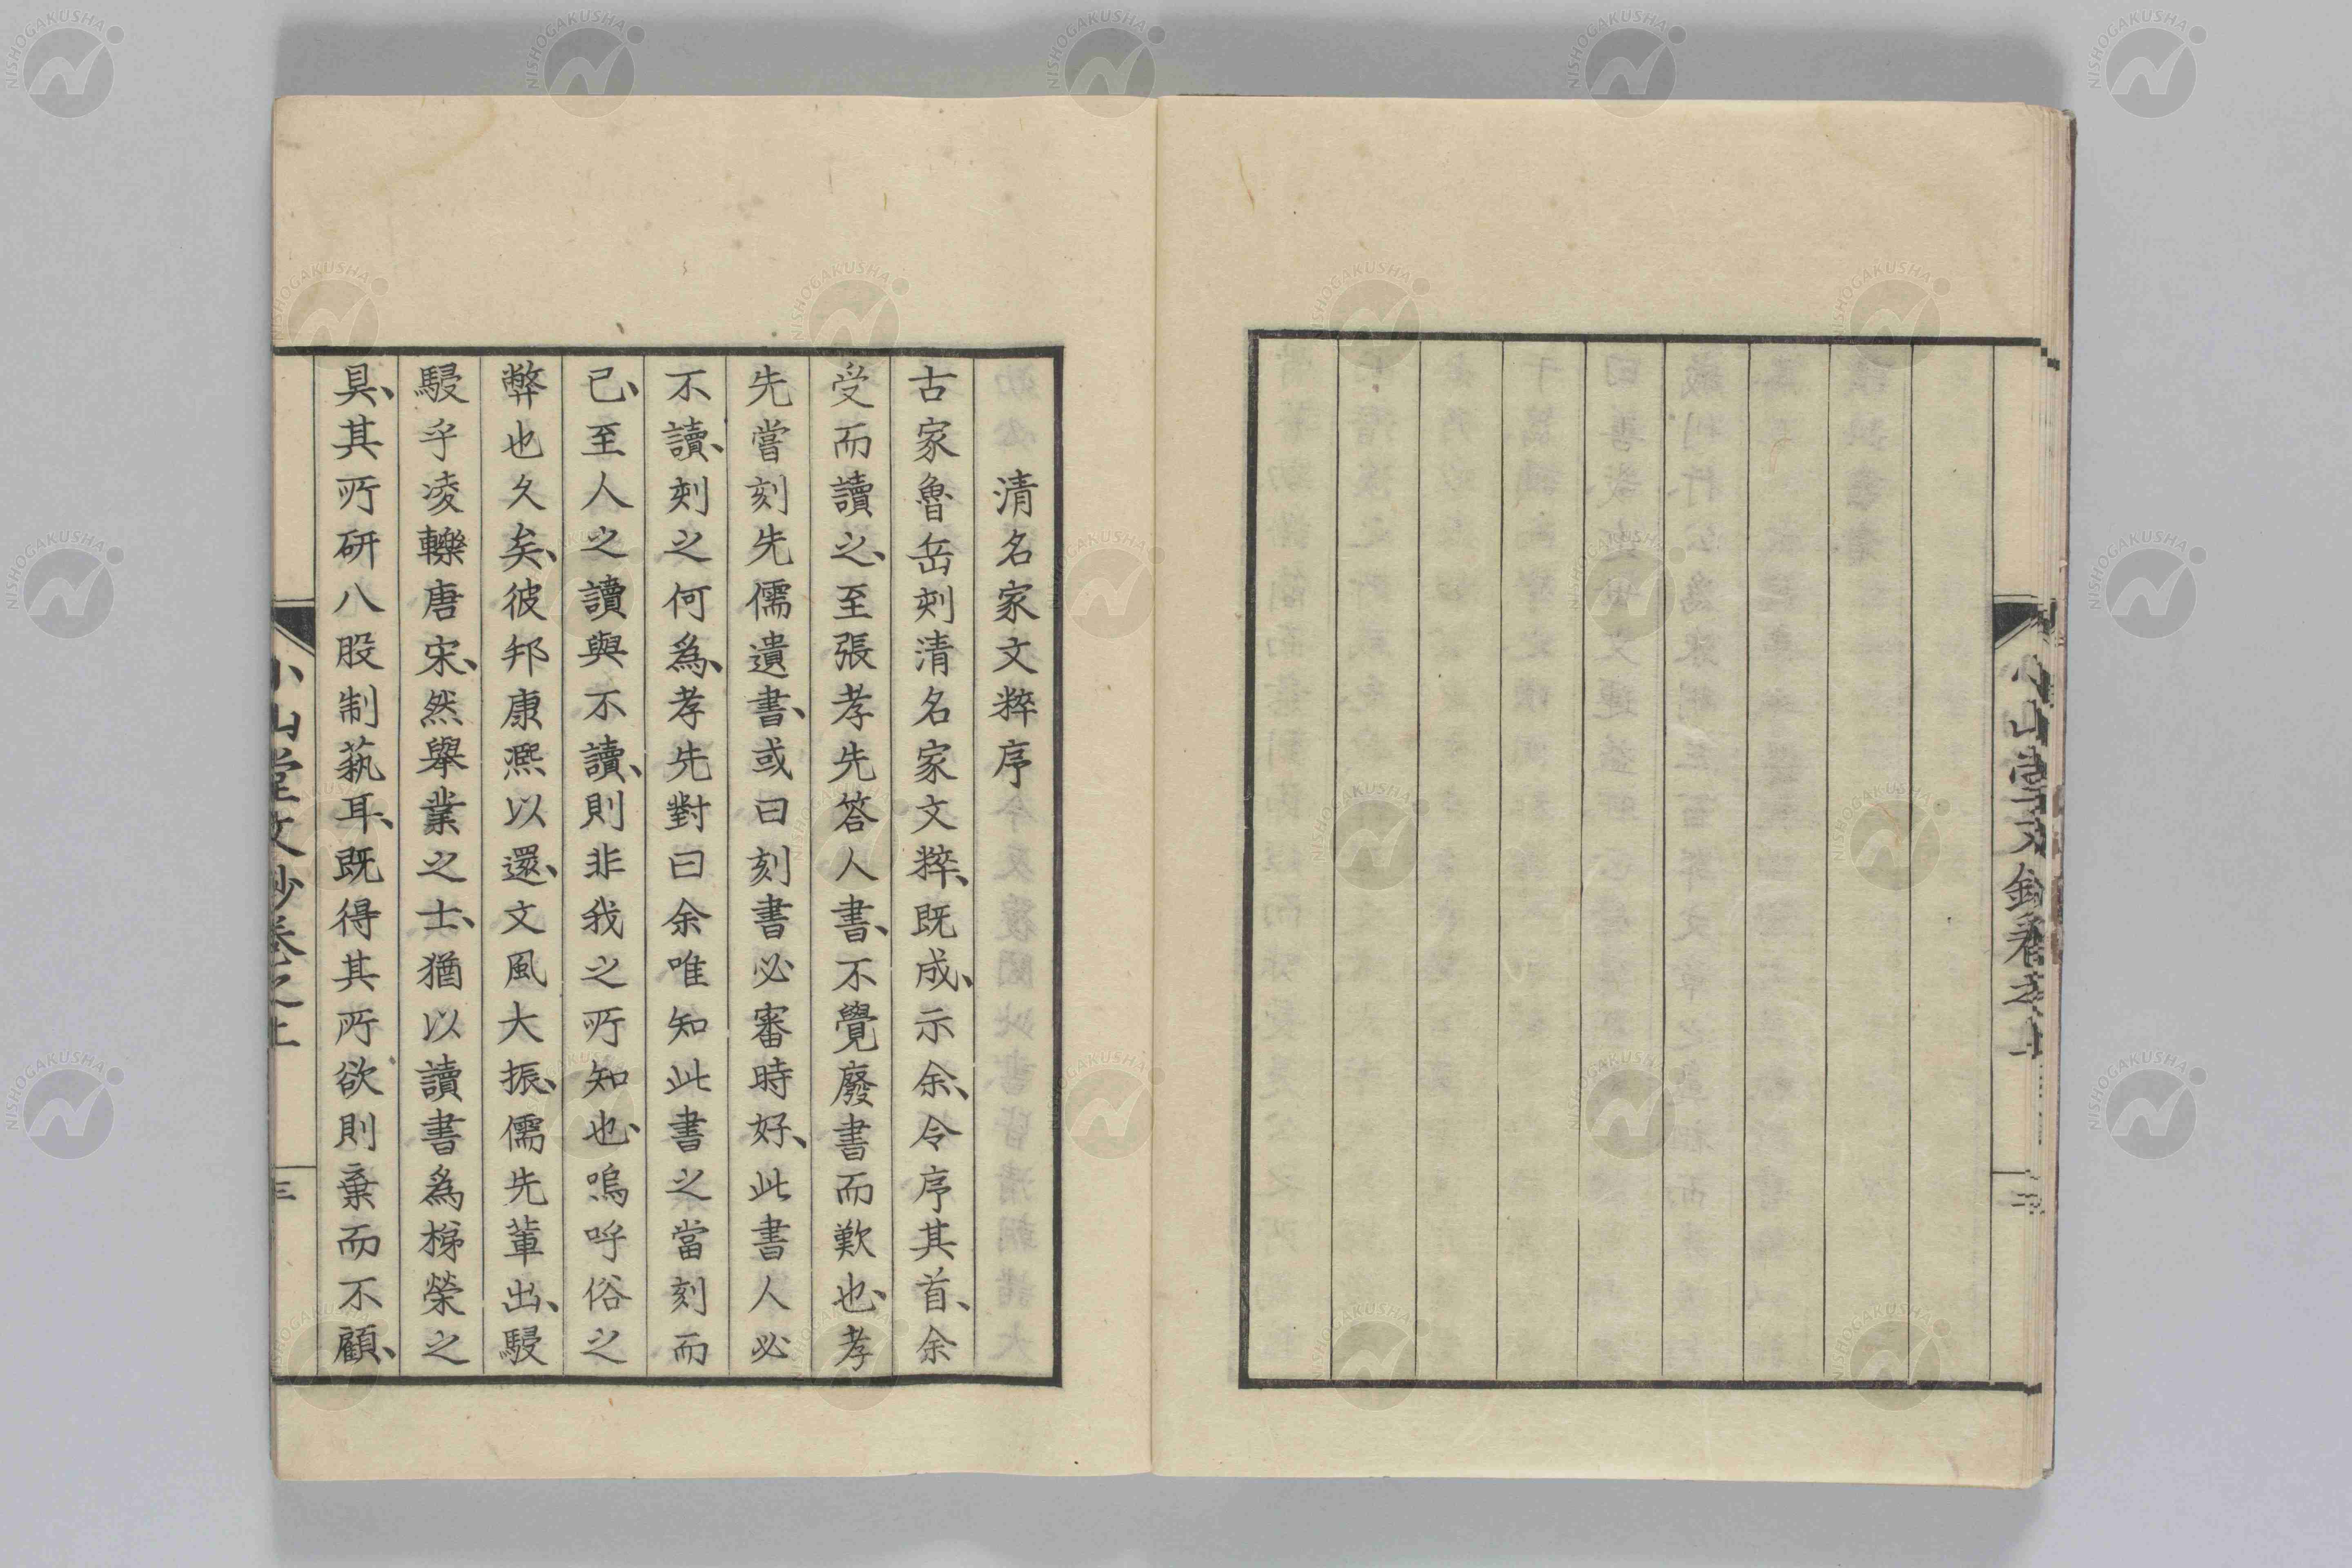 清名家文粹序
古家魯岳刻清名家文粹、既成、示余、令序其首、余
受而讀之、至張孝先答人書、不覺廢書而歎也、孝
先嘗刻先儒遺書、或曰刻書必審時好、此書人必
不讀、刻之何為、孝先對曰余唯知此書之當刻而
已、至人之讀與不讀、則非我之所知也、嗚呼俗之
弊也久矣、彼邦康熙以還、文風大振、儒先輩出、駸
駸乎凌轢唐宋、然舉業之士、猶以讀書為梯榮之
具、其所研八股制藝耳、既得其所欲則棄而不顧、
小山堂文鈔卷之上
三
NISHOGAKUSHA